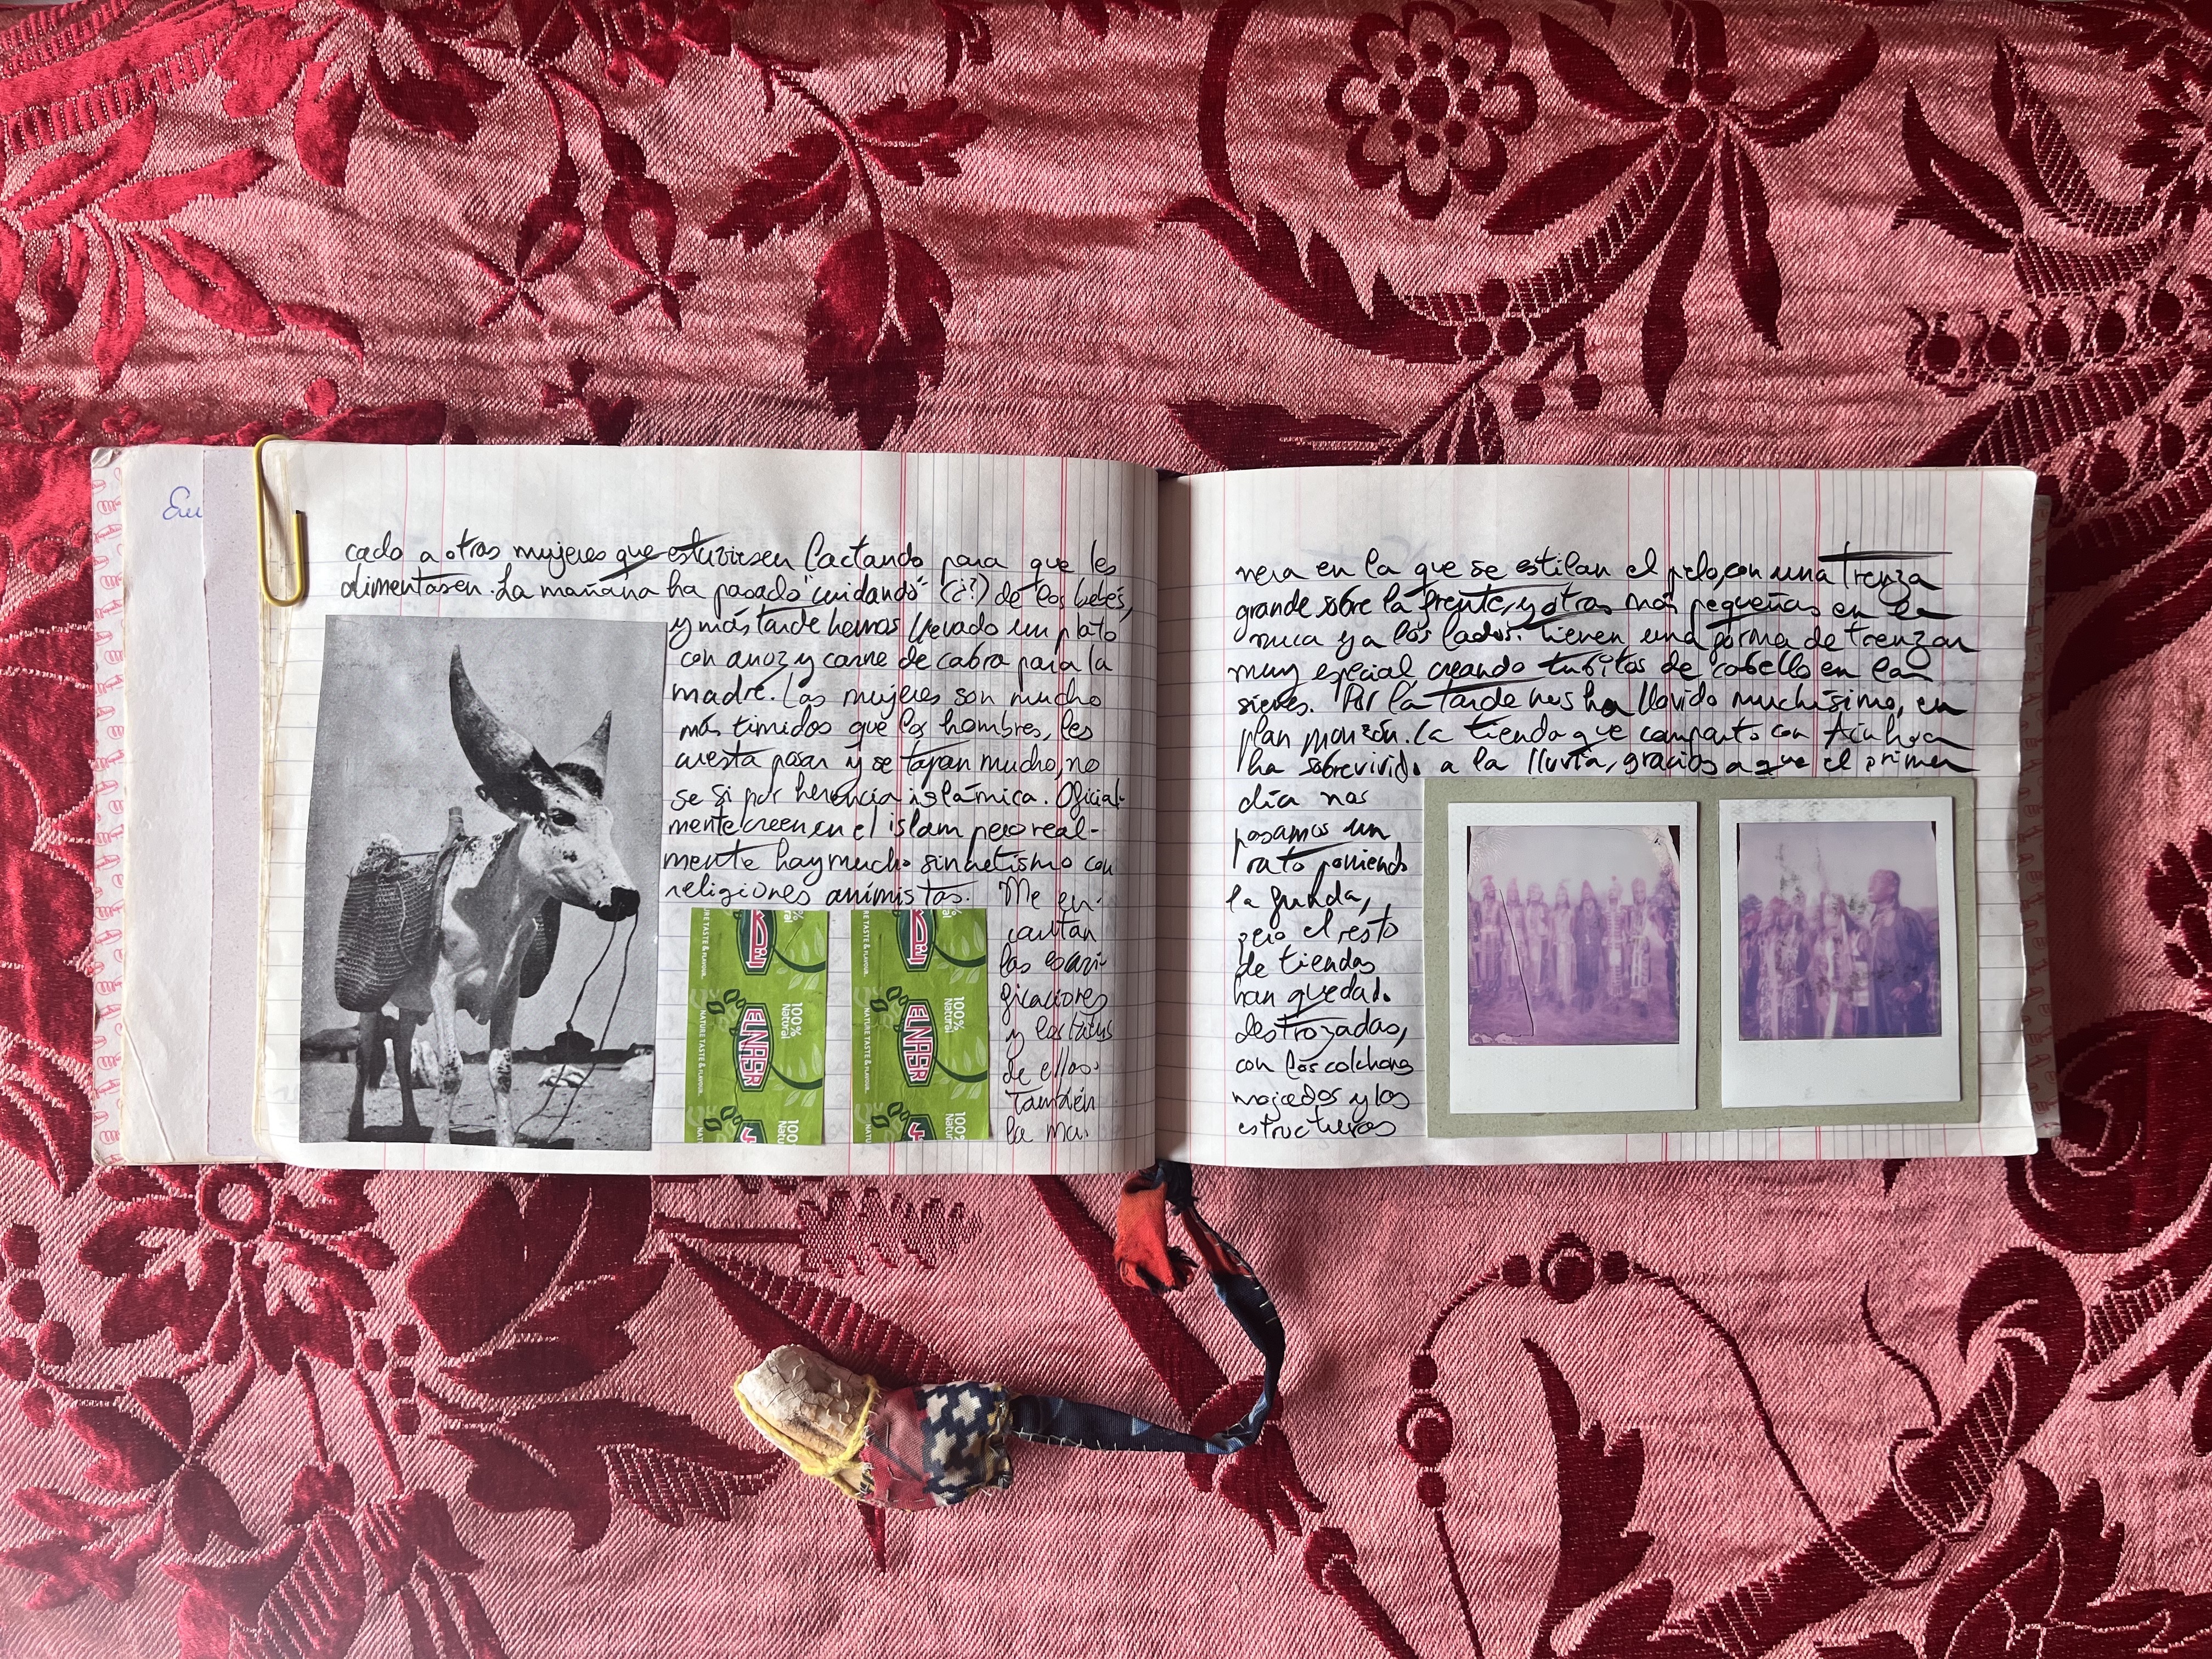 Em
cado a otras mujeres que estuviesen lactando para que les
alimentasen. La mañana ha pasado "cuidando" (¿?) de los bebés,
y más tarde hemos llevado un plato
con arroz y carne de cabra para la
madre. Las mujeres son mucho
más timidas que los hombres, les
cuesta posar y se tapan mucho, no
se si por herencia islámica. Oficial-
mente creen en el islam pero real-
mente hay mucho sincretismo con
religiones animistas. Me en-
cantan
las escari-
ficaciones
y los tatus
de ellas.
también
la ma-
النصر
100% Natural
NATURE TASTE & FLAVOUR
ELNASR
100% Natural
NATURE TASTE & FLAVOUR
100%
النصر
100% Natural
NATURE TASTE & FLAVOUR
ELNASR
100% Natural
NATURE TASTE & FLAVOUR
100% Natural
nera en la que se estilan el pelo, con una trenza
grande sobre la frente, y otras más pequeñas en la
nuca y a los lados. Tienen una forma de trenzar
muy especial, creando tubitos de cabello en las
sienes. Por la tarde nos ha llovido muchísimo, en
plan monzón. La tienda que comparto con Ainhoa
ha sobrevivido a la lluvia, gracias a que el primer
día nos
pasamos un
rato poniendo
la funda,
pero el resto
de tiendas
han quedado
destrozadas,
con los colchones
mojados y las
estructuras